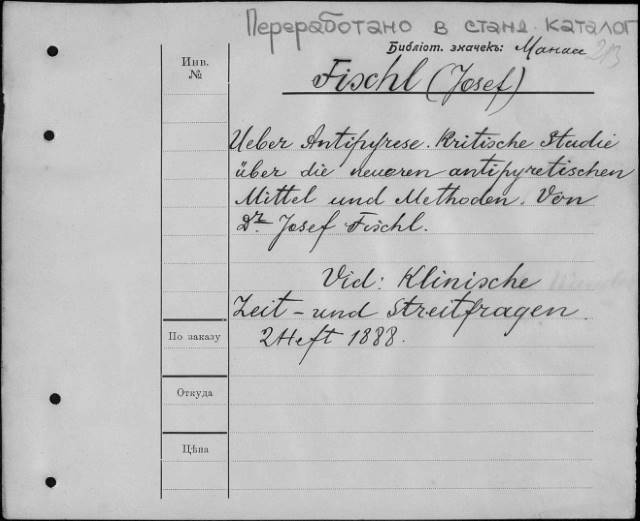 Переработано в станд. каталог
Библіот. значекъ:
Инв.
№
Fischl (Josef)
Ueber Antipyrese. Kritische Studie
über die neueren antipyretischen
Mittel und Methoden. Von
Dr. Josef Fischl.
Vid: Klinische
Zeit- und Streitfragen.
2 Heft 1888.
По заказу
Откуда
Цѣна